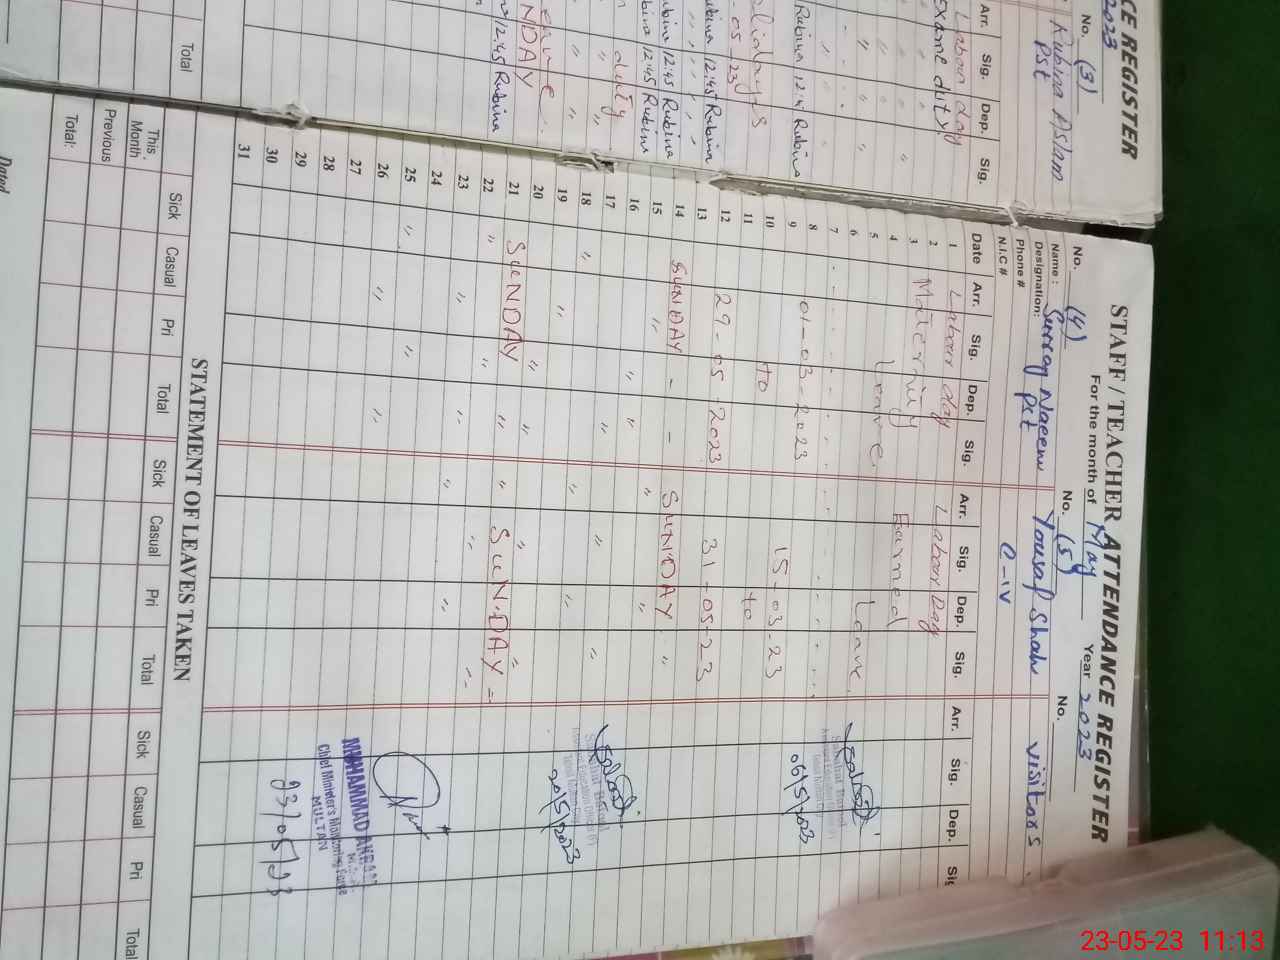 CE REGISTER
2023
No. (3)
Rubina Aslam
PST
Arr. Sig. Dep. Sig.
Labour day
Exame duty
Rubina 12:45 Rubina
12:45 Rubina
12:45 Rubina
duty
Leave
NDAY
12:45 Rubina
Total
STAFF / TEACHER ATTENDANCE REGISTER
For the month of May Year 2023
No. (4) No. (5) No.
Name : Naeem Yousaf Shah visitors
Designation: PST C-IV
Phone #
N.I.C #
Date Arr. Sig. Dep. Sig. Arr. Sig. Dep. Sig. Arr. Sig. Dep.
1 Labour day Labor Day
2
3 Maternity Earned
4
5 Leave Leave
6
7
8
9 01-03-2023 15-03-23
10 to to
11
12 29-05-2023 31-05-23
13
14 SUNDAY - - SUNDAY
15
16
17
18
19
20
21 SUNDAY SUN.DAY =
22
23
24
25
26
27
28
29
30
31
06/5/2023
20/5/2023
MUHAMMAD
Chief Minister's Monitoring Force
MULTAN
23/05/23
STATEMENT OF LEAVES TAKEN
Sick Casual Pri Total Sick Casual Pri Total Sick Casual Pri Total
This Month
Previous
Total:
Dated
23-05-23 11:13